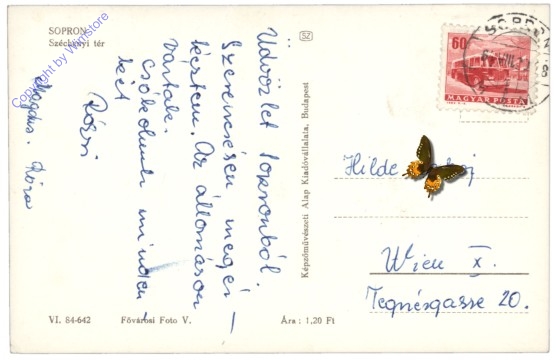 SOPRON
Széchenyi tér
Copyright by WimStore
Üdvözlet Sopronból.
Szerencsésen megér-
keztem. Az állomáson
vártak.
Csókolunk minden-
kit
Rózsi
VI. 84-642
Fővárosi Foto V.
Ára: 1,20 Ft
SZ
Képzőművészeti Alap Kiadóvállalata, Budapest
60
MAGYAR POSTA
SOPRON
Hilde
Wien X.
Tegnérgasse 20.